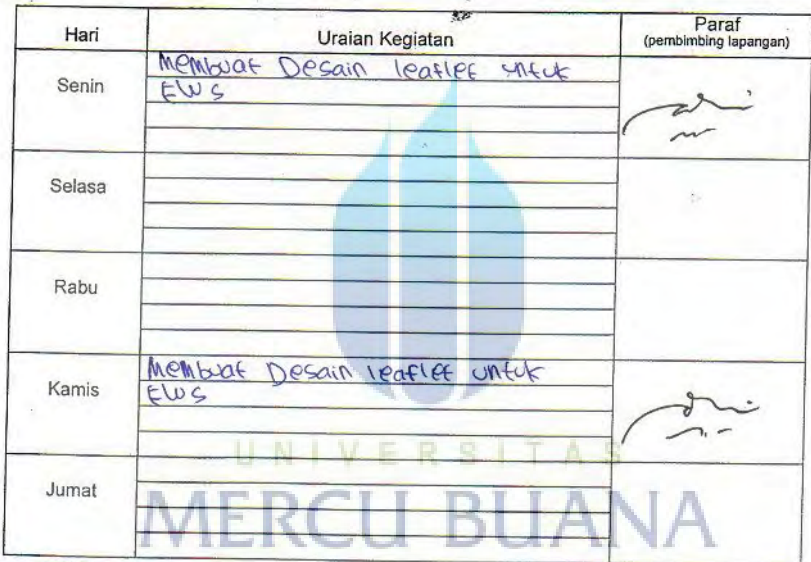 Hari Uraian Kegiatan Paraf
(pembimbing lapangan)
Senin
Membuat Desain leaflet untuk
EWS
Selasa
Rabu
Kamis
Membuat Desain leaflet untuk
EWS
Jumat
UNIVERSITAS
MERCU BUANA